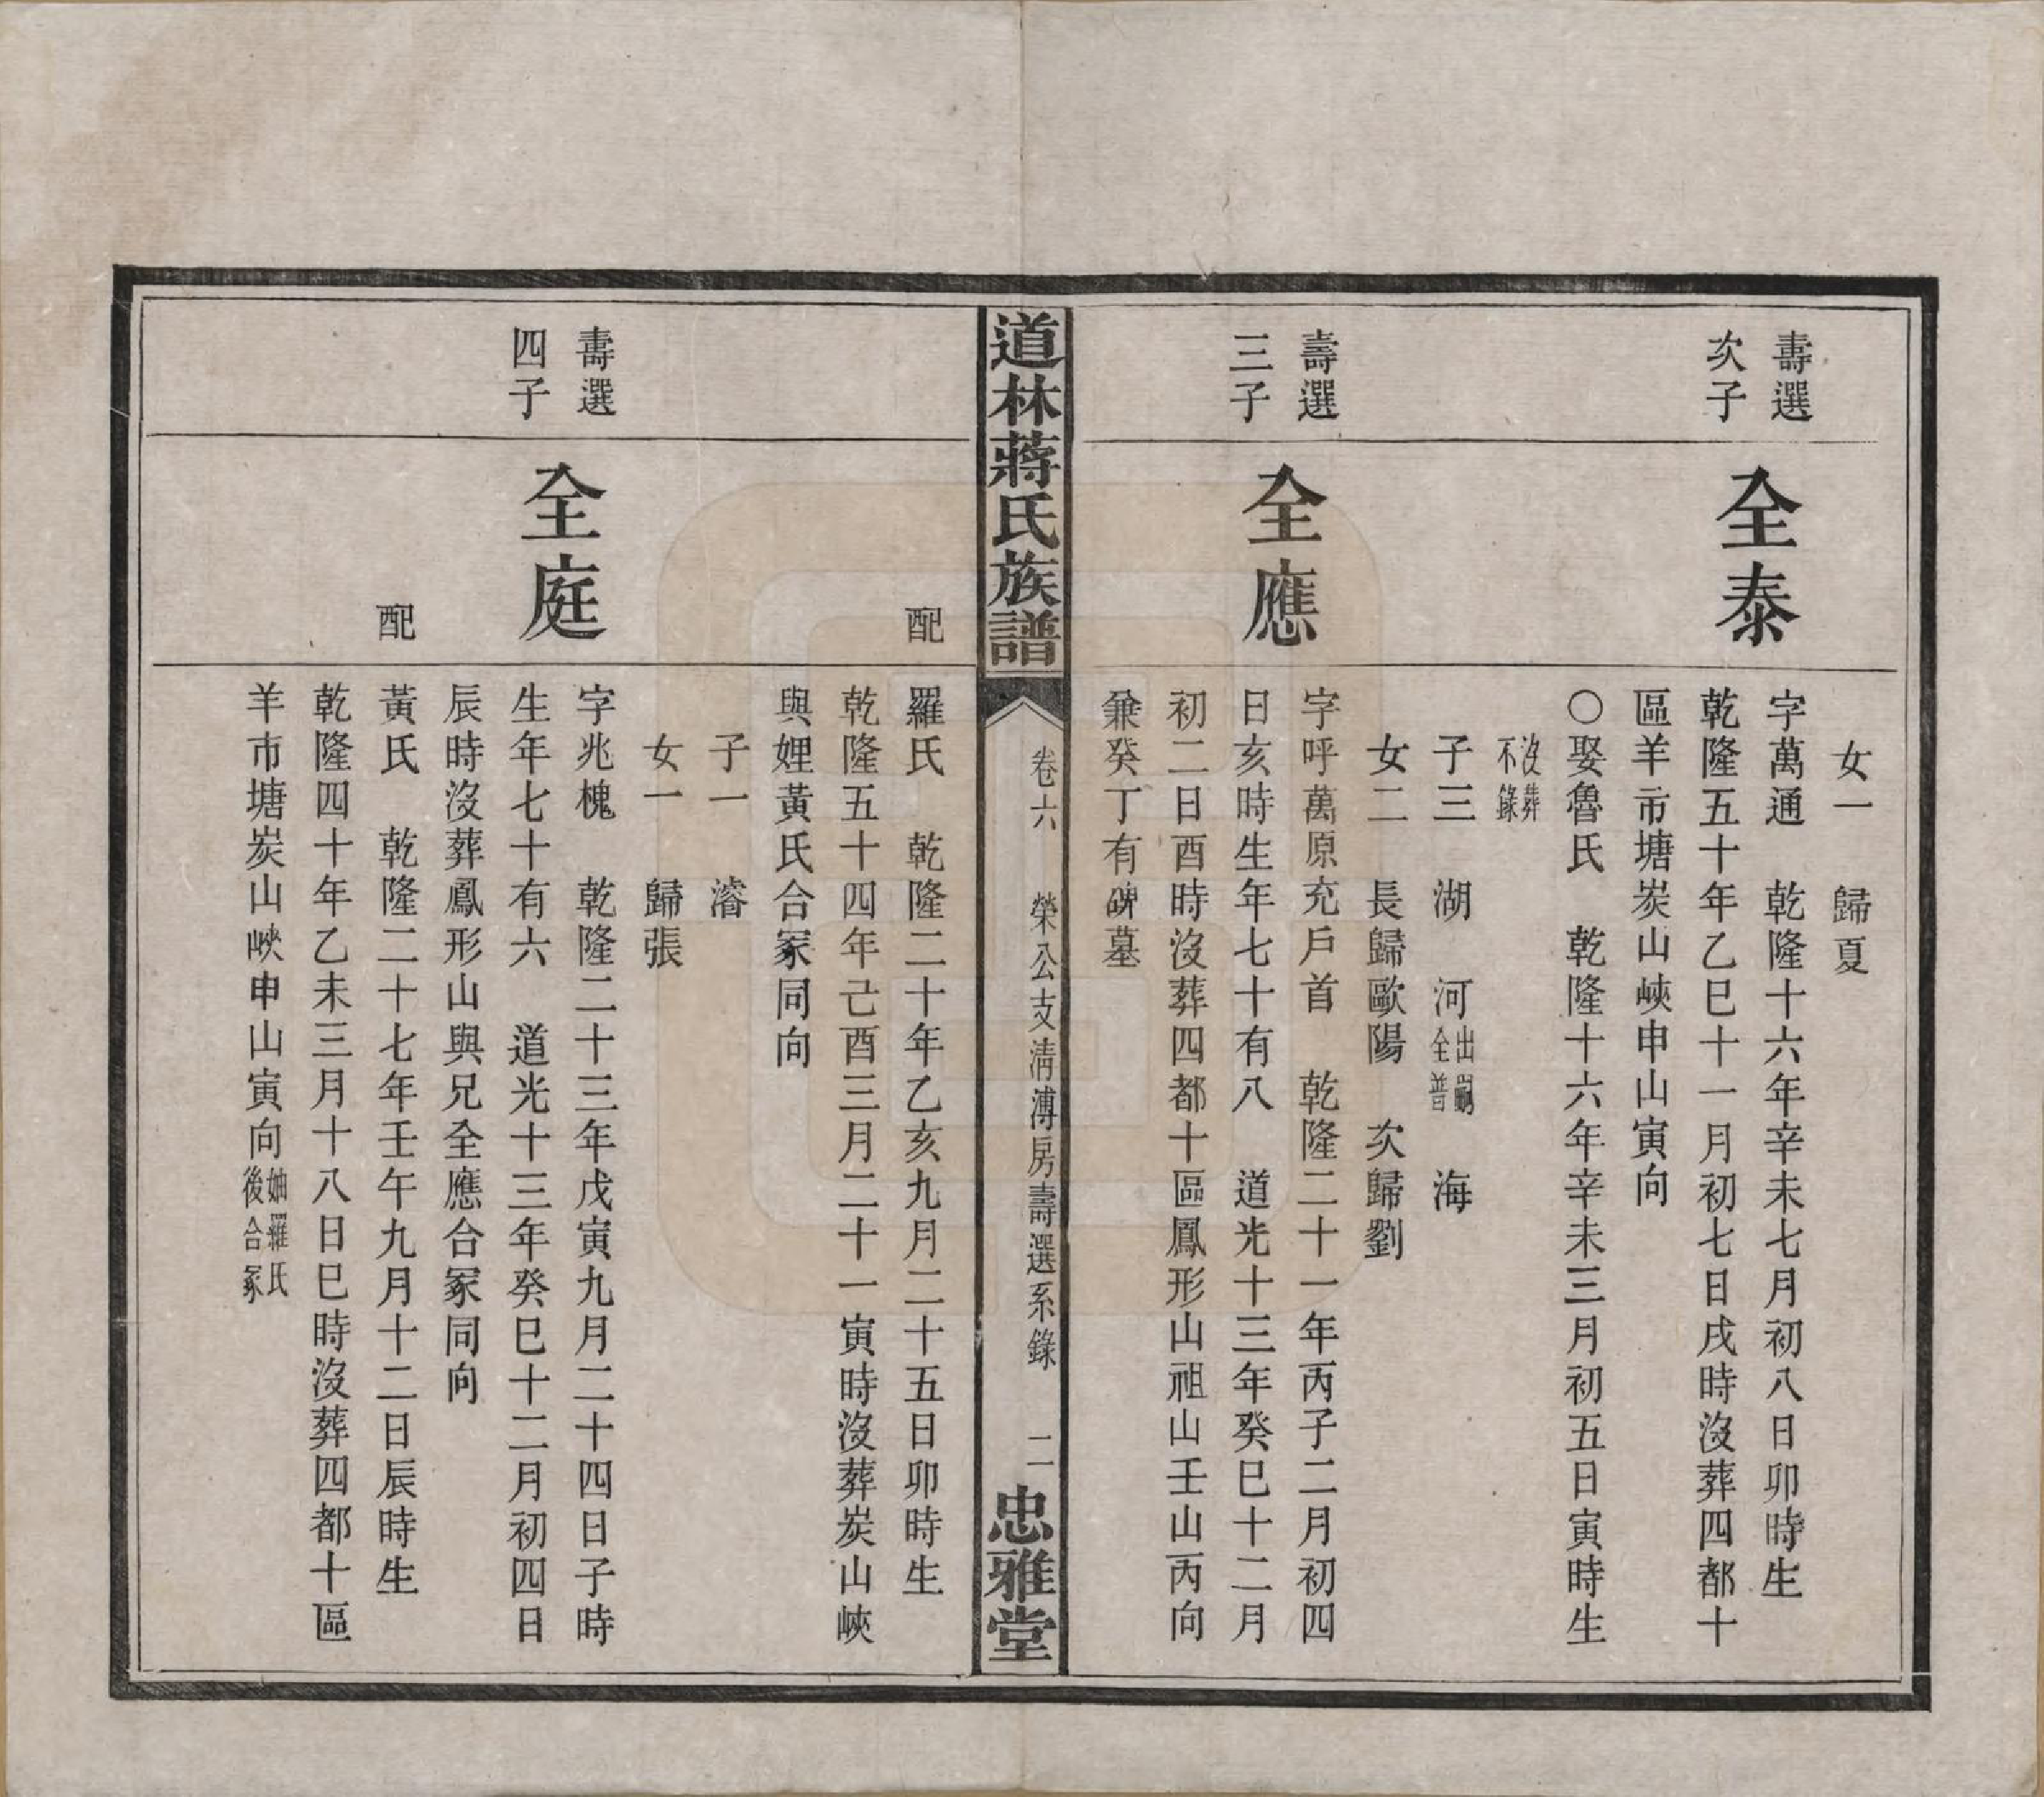 女一　歸夏
壽選
次子
全泰
字萬通　乾隆十六年辛未七月初八日卯時生
乾隆五十年乙巳十一月初七日戌時沒葬四都十
區羊市塘炭山峽申山寅向
〇娶魯氏　乾隆十六年辛未三月初五日寅時生
沒葬
不錄
子三　湖　河出嗣全普　海
女二　長歸歐陽　次歸劉
壽選
三子
全應
字呼萬原充戶首　乾隆二十一年丙子二月初四
日亥時生年七十有八　道光十三年癸巳十二月
初二日酉時沒葬四都十區鳳形山祖山壬山丙向
兼癸丁有碑墓
道林蔣氏族譜
卷六　榮公支清溥房壽選系錄　二
忠雅堂
配
羅氏　乾隆二十年乙亥九月二十五日卯時生
乾隆五十四年己酉三月二十一寅時沒葬炭山峽
與娌黃氏合冢同向
子一　濬
女一　歸張
壽選
四子
全庭
字兆槐　乾隆二十三年戊寅九月二十四日子時
生年七十有六　道光十三年癸巳十二月初四日
辰時沒葬鳳形山與兄全應合冢同向
配
黃氏　乾隆二十七年壬午九月十二日辰時生
乾隆四十年乙未三月十八日巳時沒葬四都十區
羊市塘炭山峽申山寅向妯羅氏後合冢